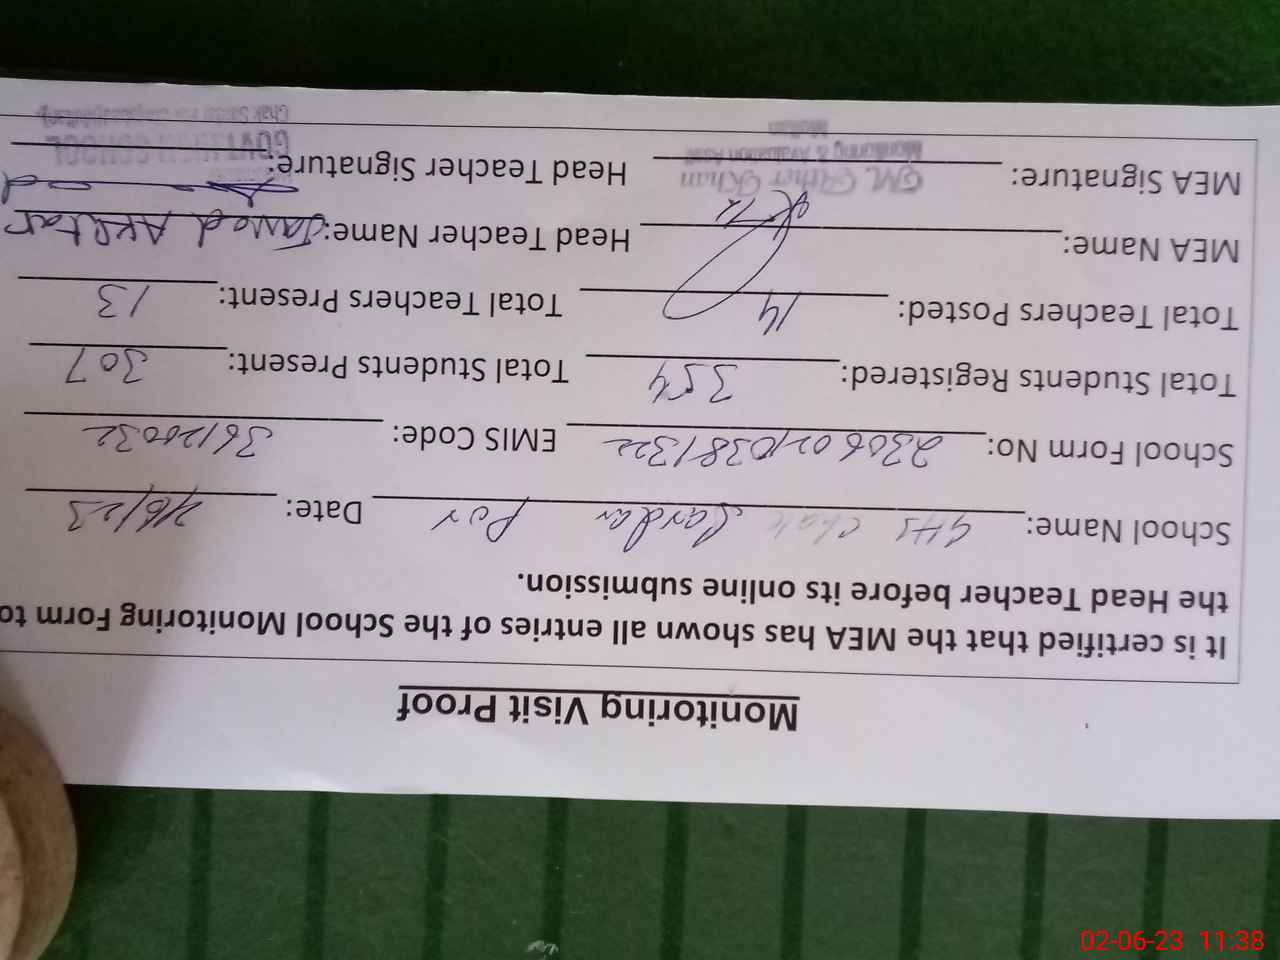 Monitoring Visit Proof
It is certified that the MEA has shown all entries of the School Monitoring Form to
the Head Teacher before its online submission.
School Name: GHS Chak Sardar Pur Date: 2/6/23
School Form No: EMIS Code: 36120032
Total Students Registered: 354 Total Students Present: 307
Total Teachers Posted: 14 Total Teachers Present: 13
MEA Name: Head Teacher Name: Javed Akhtar
MEA Signature: Head Teacher Signature:
Ather Khan
Monitoring & Evaluation
Multan
GOVT. HIGH SCHOOL
02-06-23 11:38